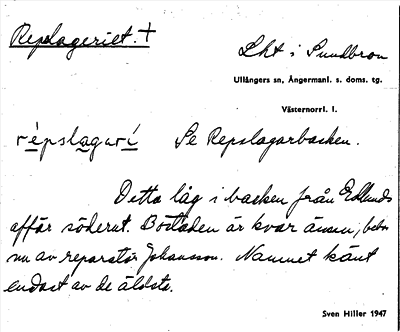 Repslageriet. +
Lht i Sundbron
Ullångers sn, Ångermanl. s. doms. tg.
Västernorrl. l.
répslagarí Se Repslagarbacken.
Detta låg i backen från Edlunds
affär söderut. Bostaden är kvar ännu, bebos
nu av reparatör Johansson. Namnet känt
endast av de äldsta.
Sven Hiller 1947